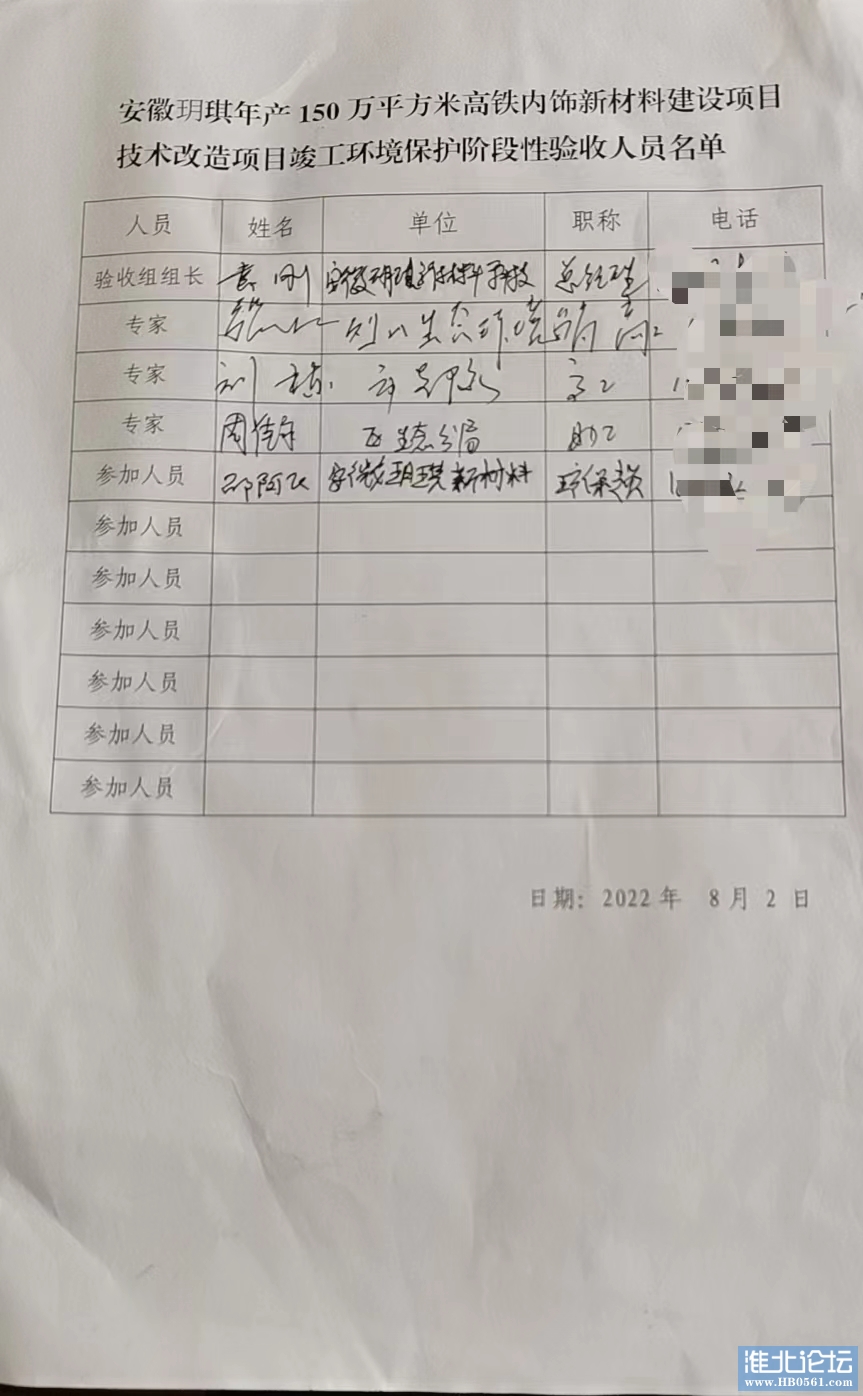 安徽玥琪年产150万平方米高铁内饰新材料建设项目
技术改造项目竣工环境保护阶段性验收人员名单
人员 姓名 单位 职称 电话
验收组组长 袁刚 安徽玥琪新材料 总经理
专家 生态环境 高工
专家 刘 高工
专家 周 区生态分局 助工
参加人员 邵阿飞 安徽玥琪新材料 环保
参加人员
参加人员
参加人员
参加人员
参加人员
参加人员
日期: 2022年 8月 2 日
淮北论坛
www.HB0561.com